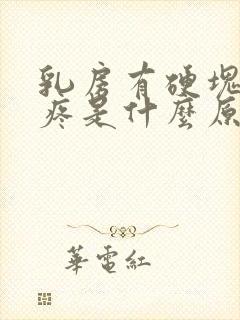 乳房有硬塊
疼是什麼原
華電紅